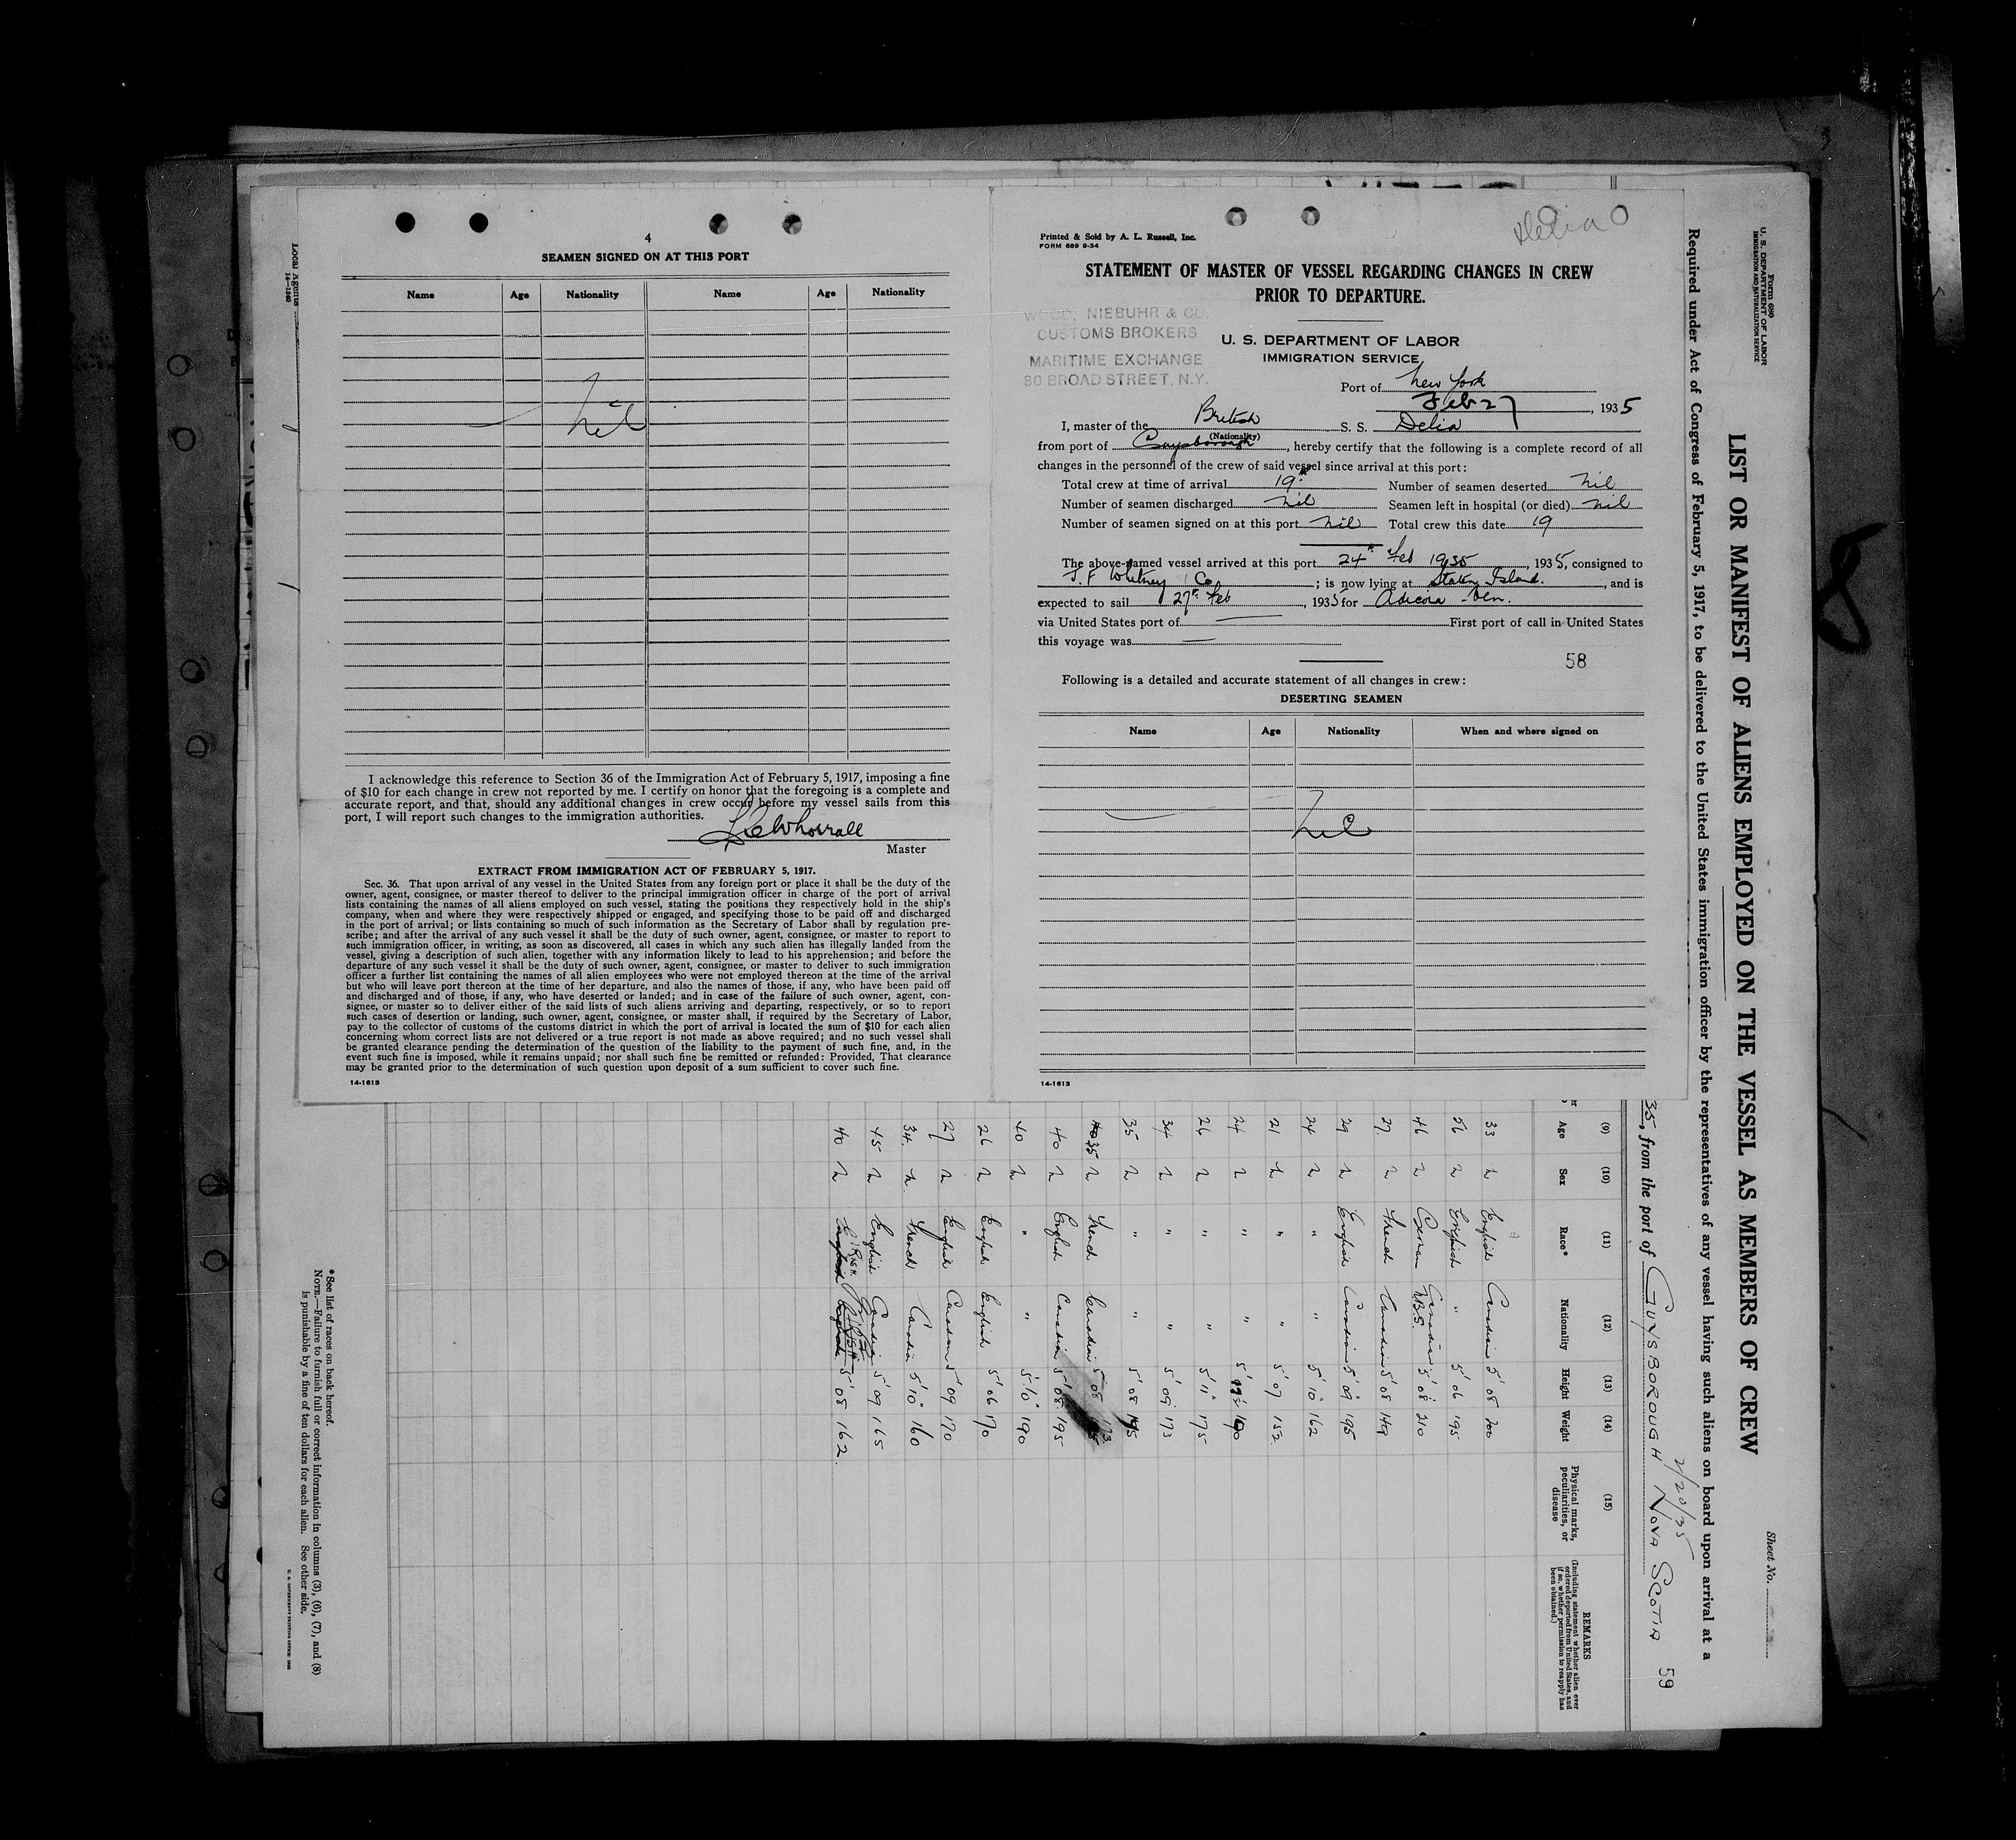 4
SEAMEN SIGNED ON AT THIS PORT
Name Age Nationality Name Age Nationality
nil
I acknowledge this reference to Section 36 of the Immigration Act of February 5, 1917, imposing a fine
of $10 for each change in crew not reported by me. I certify on honor that the foregoing is a complete and
accurate report, and that, should any additional changes in crew occur before my vessel sails from this
port, I will report such changes to the immigration authorities.
Master
EXTRACT FROM IMMIGRATION ACT OF FEBRUARY 5, 1917.
Sec. 36. That upon arrival of any vessel in the United States from any foreign port or place it shall be the duty of the
owner, agent, consignee, or master thereof to deliver to the principal immigration officer in charge of the port of arrival
lists containing the names of all aliens employed on such vessel, stating the positions they respectively hold in the ship's
company, when and where they were respectively shipped or engaged, and specifying those to be paid off and discharged
in the port of arrival; or lists containing so much of such information as the Secretary of Labor shall by regulation pre-
scribe; and after the arrival of any such vessel it shall be the duty of such owner, agent, consignee, or master to report to
such immigration officer, in writing, as soon as discovered, all cases in which any such alien has illegally landed from the
vessel, giving a description of such alien, together with any information likely to lead to his apprehension; and before the
departure of any such vessel it shall be the duty of such owner, agent, consignee, or master to deliver to such immigration
officer a further list containing the names of all alien employees who were not employed thereon at the time of the arrival
but who will leave port thereon at the time of her departure, and also the names of those, if any, who have been paid off
and discharged and of those, if any, who have deserted or landed; and in case of the failure of such owner, agent, con-
signee, or master so to deliver either of the said lists of such aliens arriving and departing, respectively, or so to report
such cases of desertion or landing, such owner, agent, consignee, or master shall, if required by the Secretary of Labor,
pay to the collector of customs of the customs district in which the port of arrival is located the sum of $10 for each alien
concerning whom correct lists are not delivered or a true report is not made as above required; and no such vessel shall
be granted clearance pending the determination of the question of the liability to the payment of such fine, and, in the
event such fine is imposed, while it remains unpaid; nor shall such fine be remitted or refunded: Provided, That clearance
may be granted prior to the determination of such question upon deposit of a sum sufficient to cover such fine.
14-1613
Delia
Printed & Sold by A. L. Russell, Inc.
FORM 689 9-34
STATEMENT OF MASTER OF VESSEL REGARDING CHANGES IN CREW
PRIOR TO DEPARTURE.
WOOD, NIEBUHR & CO.
CUSTOMS BROKERS
MARITIME EXCHANGE
80 BROAD STREET, N.Y.
U. S. DEPARTMENT OF LABOR
IMMIGRATION SERVICE
Port of New York
Feb 27, 1935
I, master of the British S. S. Delia
(Nationality)
from port of Guysborough, hereby certify that the following is a complete record of all
changes in the personnel of the crew of said vessel since arrival at this port:
Total crew at time of arrival 19 Number of seamen deserted nil
Number of seamen discharged nil Seamen left in hospital (or died) nil
Number of seamen signed on at this port nil Total crew this date 19
The above-named vessel arrived at this port 24th Feb 1935, 1935, consigned to
J. F Whitney & Co; is now lying at Staten Island., and is
expected to sail 27th Feb, 1935 for Adicora - Ven.
via United States port of First port of call in United States
this voyage was
58
Following is a detailed and accurate statement of all changes in crew:
DESERTING SEAMEN
Name Age Nationality When and where signed on
nil
14-1613
Form 680
U. S. DEPARTMENT OF LABOR
IMMIGRATION AND NATURALIZATION SERVICE
Sheet No.
LIST OR MANIFEST OF ALIENS EMPLOYED ON THE VESSEL AS MEMBERS OF CREW
Required under Act of Congress of February 5, 1917, to be delivered to the United States immigration officer by the representatives of any vessel having such aliens on board upon arrival at a
2/20/35
35, from the port of GUYSBOROUGH NOVA SCOTIA 59
(9) (10) (11) (12) (13) (14) (15)
Age Sex Race* Nationality Height Weight Physical marks, peculiarities, or disease
REMARKS
(Including statement whether alien ever ordered deported from United States, and if so, whether permission to reapply has been obtained.)
33 English Canadian 5' 08 200
56 English " 5' 06 195
46 German Canadian 5' 08 210
27 French Canadian 5' 08 149
29 English Canadian 5' 09 195
24 " " 5' 10" 162
21 " " 5' 07 152
24 " "
26 " " 5' 11" 175
34 " " 5' 09 173
35 " " 5' 08
35 French Canadian 5' 08
40 English Canadian 5' 08 195
40 " " 5' 10" 190
26 English English 5' 06 170
27 English Canadian 5' 09 170
34 French Canadian 5' 10" 160
45 English Canadian 5' 09 165
40 IRISH 5' 08 162
*See list of races on back hereof.
NOTE.—Failure to furnish full or correct information in columns (3), (6), (7), and (8)
is punishable by a fine of ten dollars for each alien. See other side.
Local Agents
8